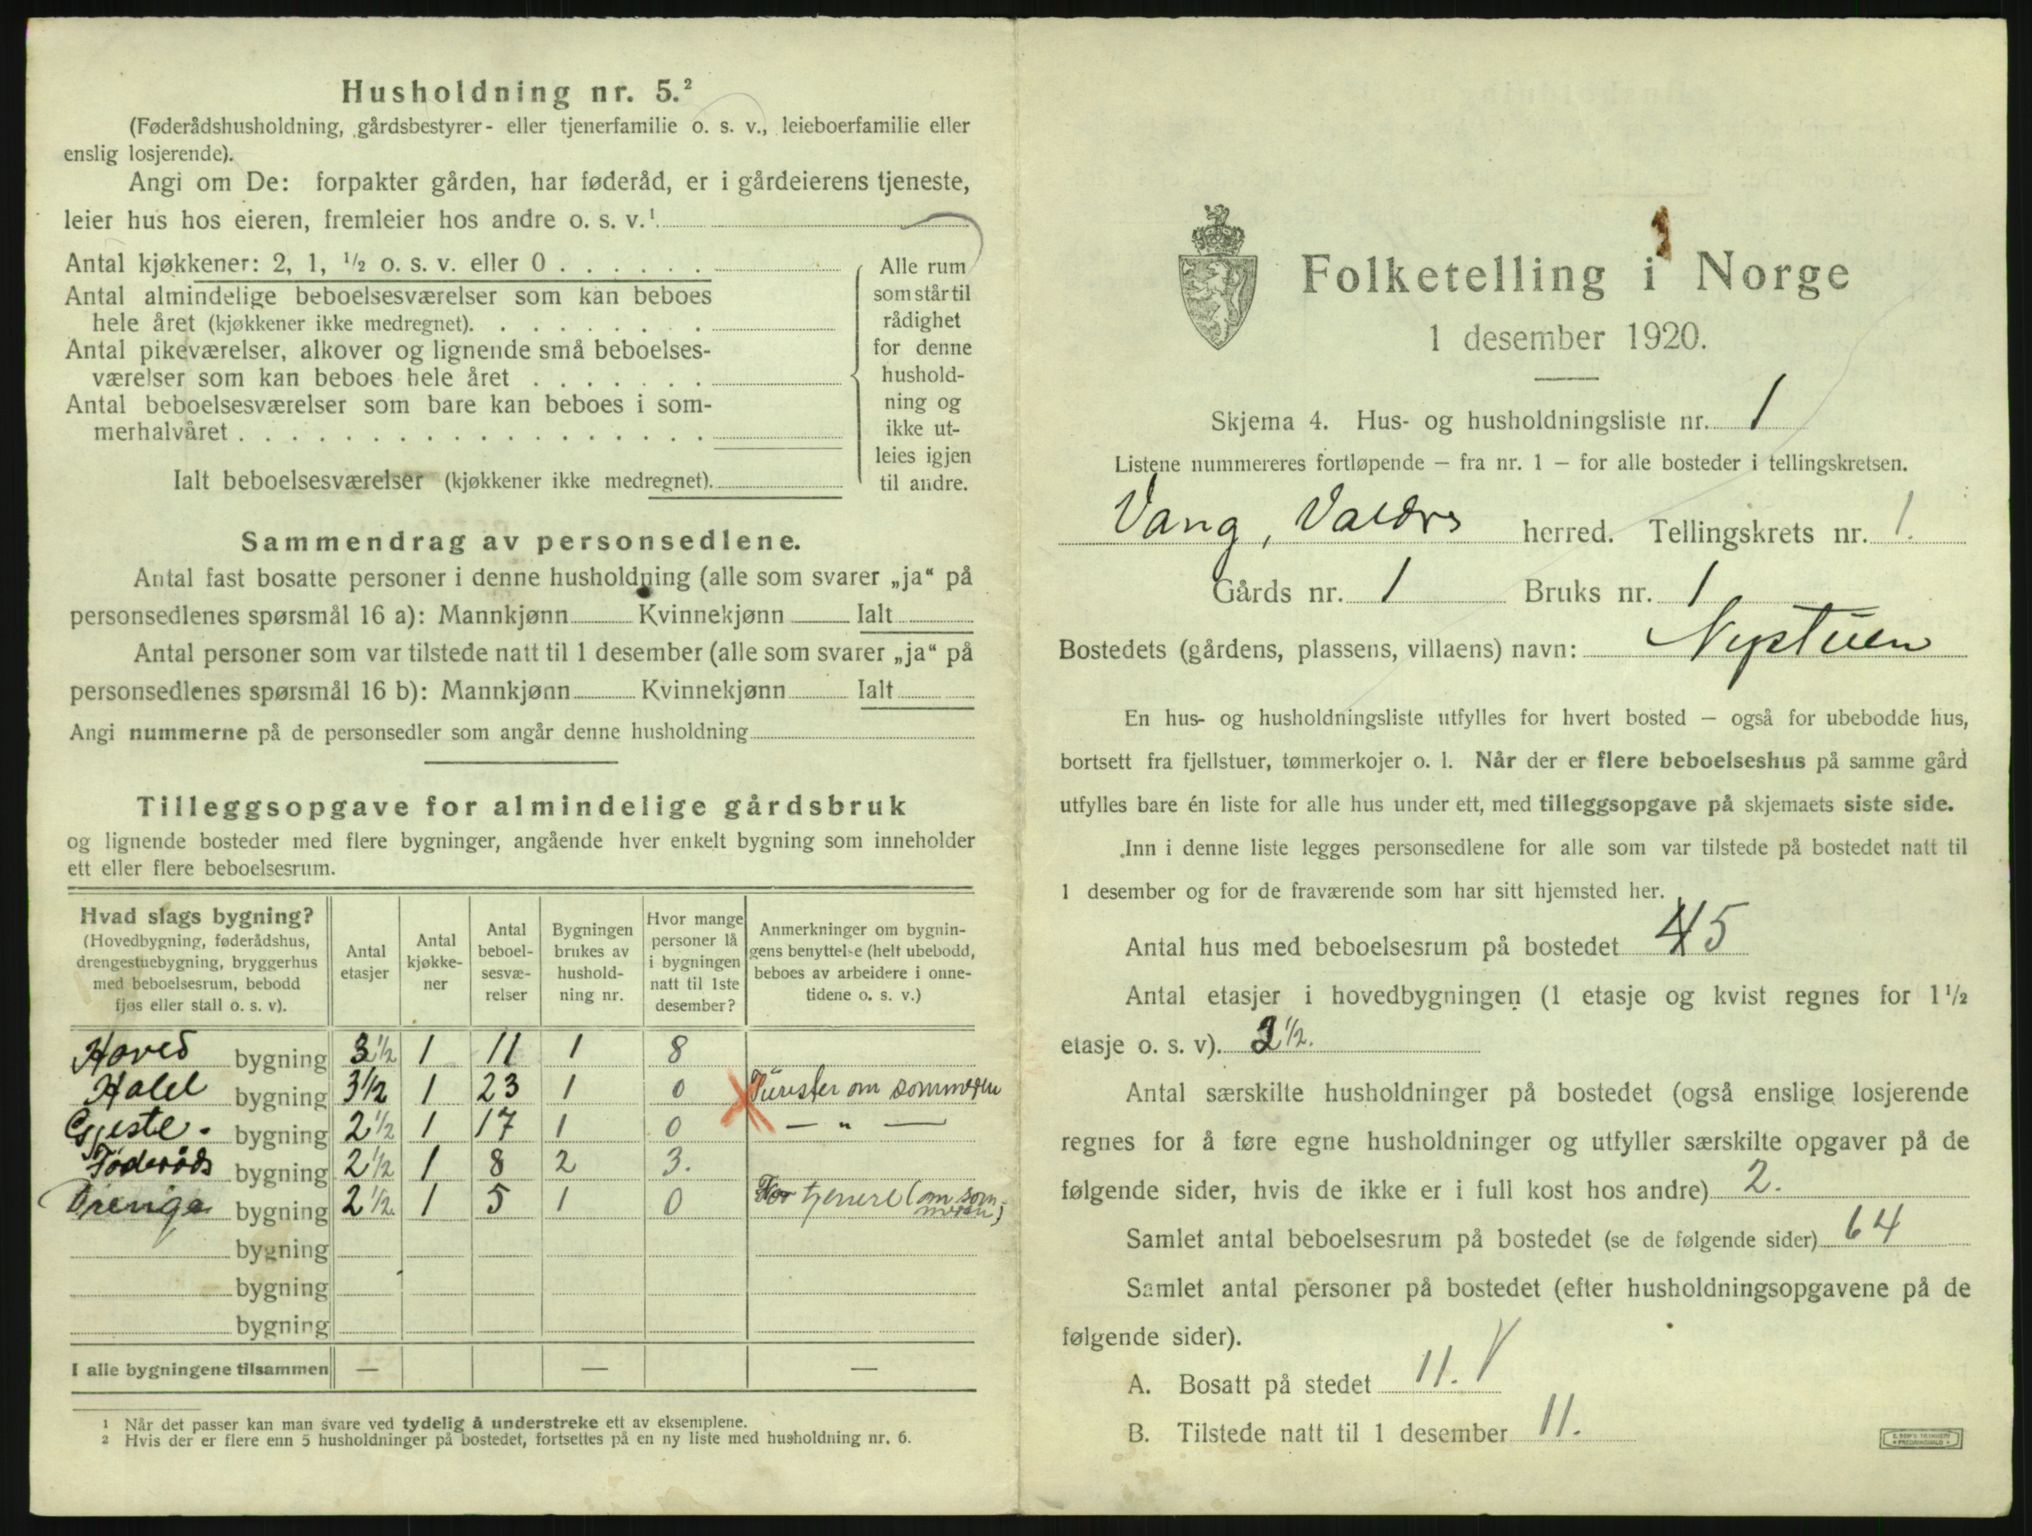 Husholdning nr. 5.²
(Føderådshusholdning, gårdsbestyrer- eller tjenerfamilie o. s. v., leieboerfamilie eller
enslig losjerende).
Angi om De: forpakter gården, har føderåd, er i gårdeierens tjeneste,
leier hus hos eieren, fremleier hos andre o. s. v.¹
Antal kjøkkener: 2, 1, ½ o. s. v. eller 0 . . . . . .
Antal almindelige beboelsesværelser som kan beboes
hele året (kjøkkener ikke medregnet). . . . . . . . .
Antal pikeværelser, alkover og lignende små beboelses-
værelser som kan beboes hele året . . . . . . .
Antal beboelsesværelser som bare kan beboes i som-
merhalvåret . . . . . . . . . . . . . . . . . .
Ialt beboelsesværelser (kjøkkener ikke medregnet).
Alle rum
som står til
rådighet
for denne
hushold-
ning og
ikke ut-
leies igjen
til andre.
Sammendrag av personsedlene.
Antal fast bosatte personer i denne husholdning (alle som svarer „ja“ på
personsedlenes spørsmål 16 a): Mannkjønn Kvinnekjønn Ialt
Antal personer som var tilstede natt til 1 desember (alle som svarer „ja“ på
personsedlenes spørsmål 16 b): Mannkjønn Kvinnekjønn Ialt
Angi nummerne på de personsedler som angår denne husholdning
Tilleggsopgave for almindelige gårdsbruk
og lignende bosteder med flere bygninger, angående hver enkelt bygning som inneholder
ett eller flere beboelsesrum.
Hvad slags bygning?
(Hovedbygning, føderådshus,
drengestuebygning, bryggerhus
med beboelsesrum, bebodd
fjøs eller stall o. s. v.).
Antal
etasjer
Antal
kjøkke-
ner
Antal
beboel-
sesvæ-
relser
Bygningen
brukes av
hushold-
ning nr.
Hvor mange
personer lå
i bygningen
natt til 1ste
desember?
Anmerkninger om bygnin-
gens benyttelse (helt ubebodd,
beboes av arbeidere i onne-
tidene o. s. v.)
Hoved bygning 3½ 1 11 1 8
Hotel bygning 3½ 1 23 1 0 Turister om sommeren
Gjeste- bygning 2½ 1 17 1 0 — „ —
Føderåds bygning 2½ 1 8 2 3.
Drenge bygning 2½ 1 5 1 0 For tjenere (om som
meren)
bygning
bygning
bygning
I alle bygningene tilsammen — — —
¹ Når det passer kan man svare ved tydelig å understreke ett av eksemplene.
² Hvis der er flere enn 5 husholdninger på bostedet, fortsettes på en ny liste med husholdning nr. 6.
Folketelling i Norge
1 desember 1920.
Skjema 4. Hus- og husholdningsliste nr. 1
Listene nummereres fortløpende – fra nr. 1 – for alle bosteder i tellingskretsen.
Vang, Valdres herred. Tellingskrets nr. 1.
Gårds nr. 1 Bruks nr. 1
Bostedets (gårdens, plassens, villaens) navn: Nystuen
En hus- og husholdningsliste utfylles for hvert bosted – også for ubebodde hus,
bortsett fra fjellstuer, tømmerkojer o. l. Når der er flere beboelseshus på samme gård
utfylles bare én liste for alle hus under ett, med tilleggsopgave på skjemaets siste side.
Inn i denne liste legges personsedlene for alle som var tilstede på bostedet natt til
1 desember og for de fraværende som har sitt hjemsted her.
Antal hus med beboelsesrum på bostedet 5
Antal etasjer i hovedbygningen (1 etasje og kvist regnes for 1½
etasje o. s. v). 3½.
Antal særskilte husholdninger på bostedet (også enslige losjerende
regnes for å føre egne husholdninger og utfyller særskilte opgaver på de
følgende sider, hvis de ikke er i full kost hos andre) 2.
Samlet antal beboelsesrum på bostedet (se de følgende sider) 64
Samlet antal personer på bostedet (efter husholdningsopgavene på de
følgende sider).
A. Bosatt på stedet 11.
B. Tilstede natt til 1 desember 11.